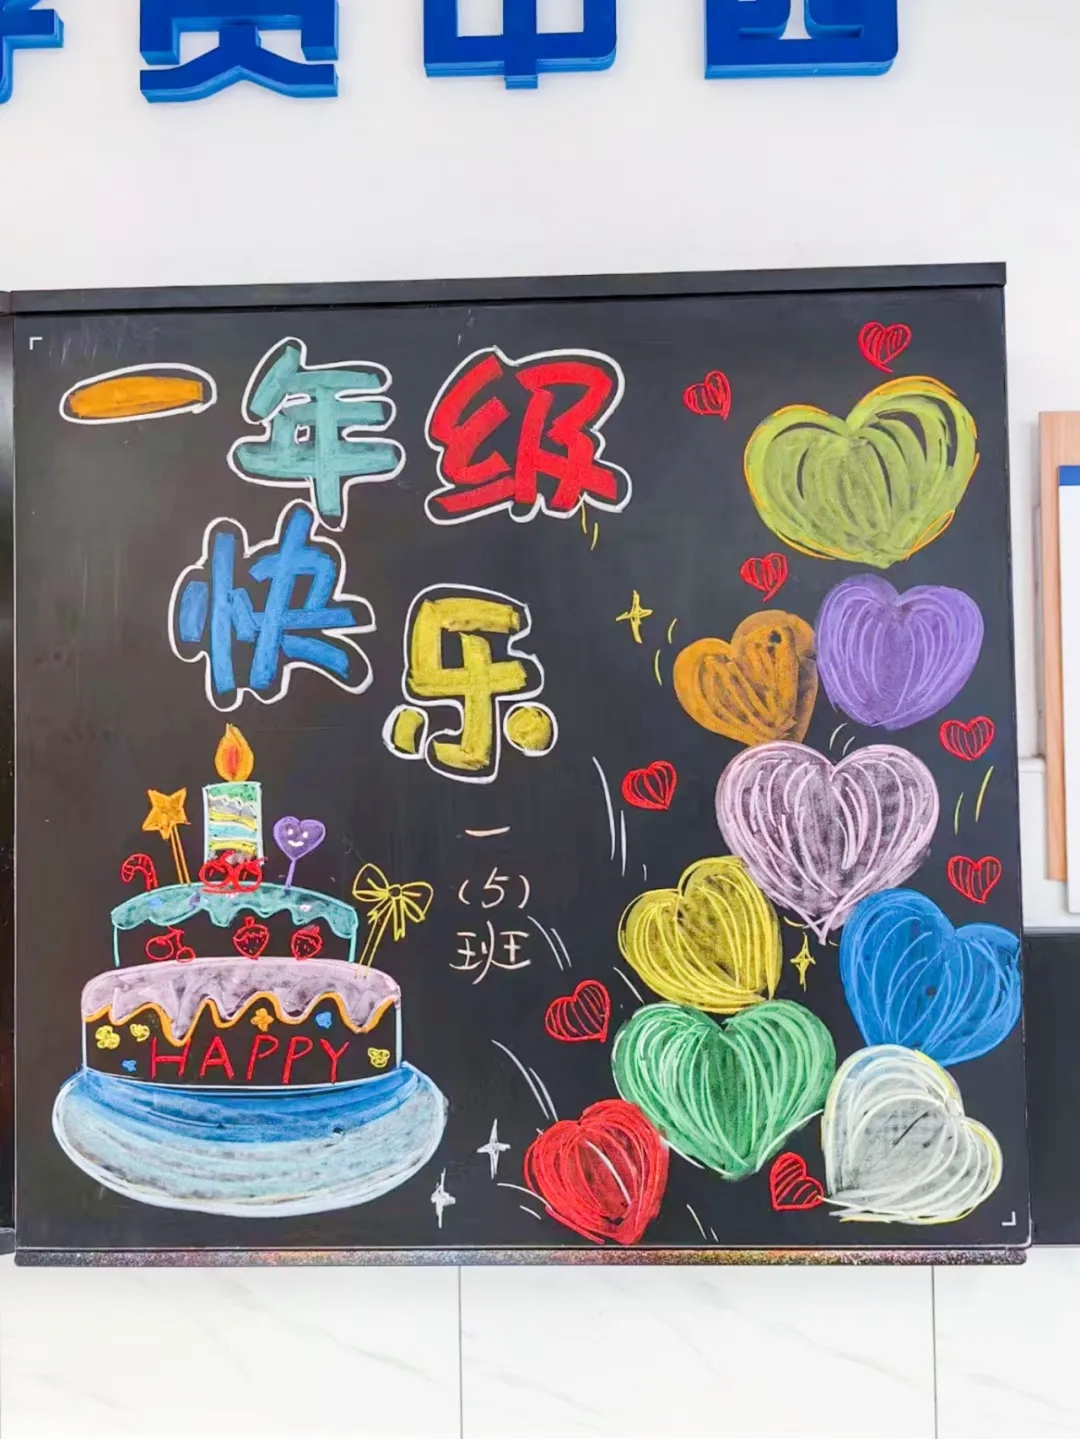 一年级
快
乐
一
(5)
班
HAPPY